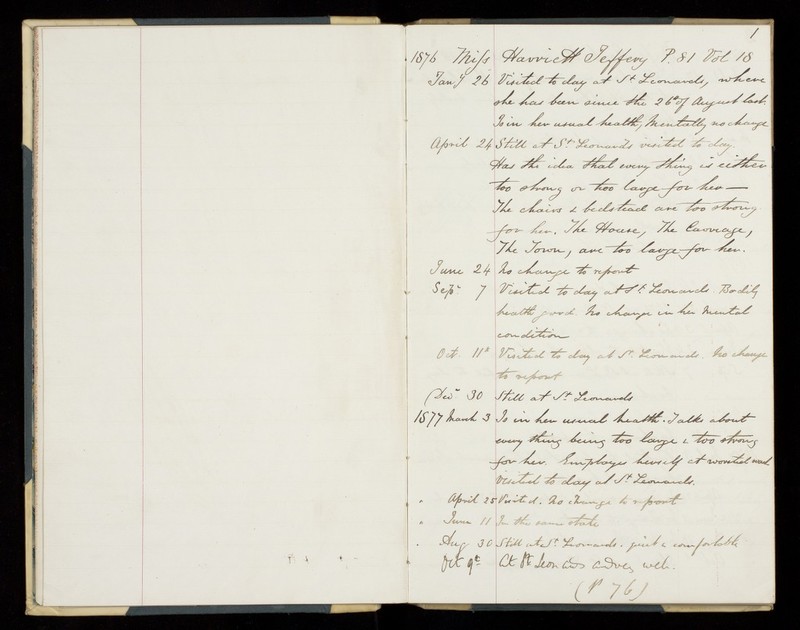 1
1876 Miss Harriett Jeffery P. 81 Vol 18
Jany 26 Visited to day at St Leonards, where
she has been since the 26th of August last.
Is in her usual health, Mentally no change
April 24 Still at St Leonards visited to day.
Has the idea that every thing is either
too strong or too large for her—
The chairs & bedstead are too strong
for her. The House, The Carriage,
The Town, are too large for her.
June 24 No change to report
Sepr 7 Visited to day at St Leonards Bodily
health good. No change in her Mental
condition
Oct. 11th Visited to day at St Leonards. No change
to report
Decr 30 Still at St Leonards
1877 March 3 Is in her usual health. Talks about
every thing being too large & too strong
for her. Employs herself at worsted work
Visited to day at St Leonards.
" April 25 Visited. No change to report
" June 11 In the same state
" Aug 30 Still at St Leonards. quiet & comfortable
Oct 9th At St Leonards well.
(P 76)